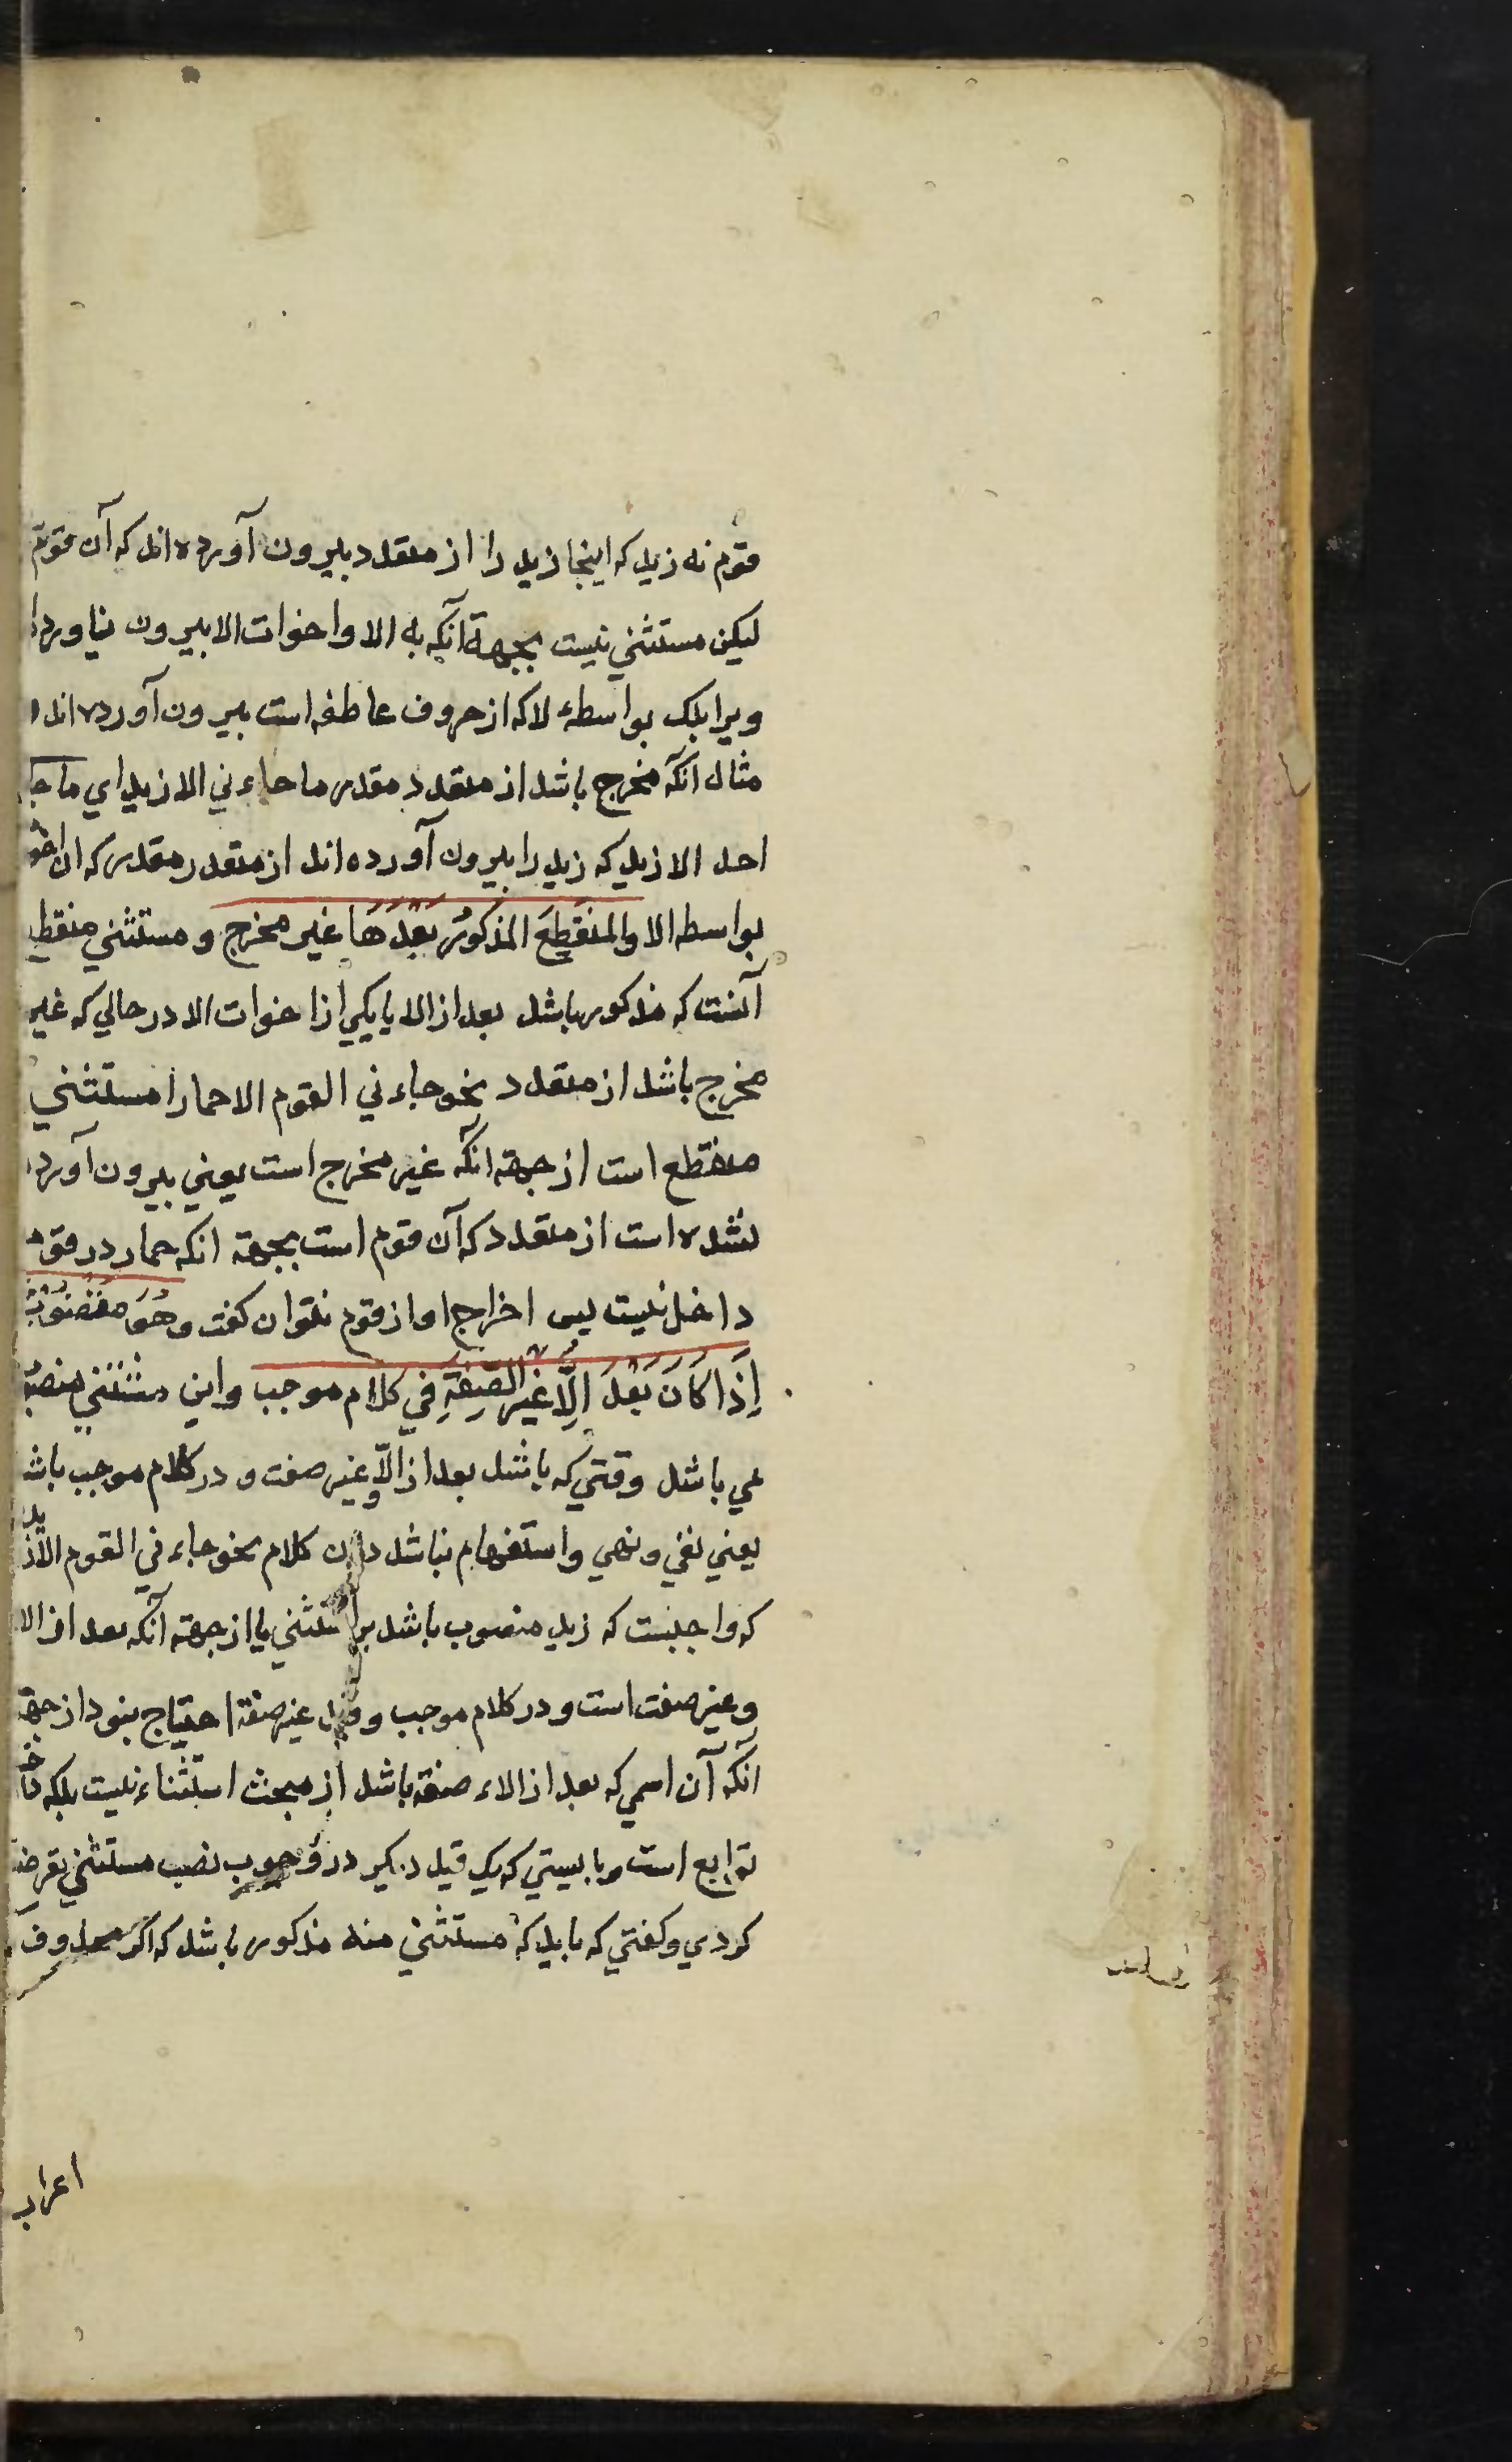 قوم نه زید که اینجا زید را از متعدد بیرون آورده اند که آن قوم
لیکن مستثنی نیست بجهة آنکه به الا و اخوات الا بیرون نیاورده
ویرا بلک بواسطهٔ لا که از حروف عاطفه است بیرون آورده اند و
مثال آنکه مخرج باشد از متعدد مقدر ما جاءني الا زید اي ما جا
احد الا زید که زید را بیرون آورده اند از متعدد مقدر که آن احد
بواسطه الا والمنقطع المذکور بَعْدَهَا غیر مخرج و مستثنی منقطع
آنست که مذکور باشد بعد از الا یا یکی از اخوات الا در حالی که غیر
مخرج باشد از متعدد نحو جاءني القوم الا حمارا مستثنی
منقطع است از جهة آنکه غیر مخرج است یعنی بیرون آورده
نشده است از متعدد که آن قوم است بجهة آنکه حمار در قوم
داخل نیست پس اخراج او از قوم نتوان کفت وهُوَ مَنْصُوْبٌ
إِذَا كَانَ بَعْدَ إِلَّا غَيْرِ الصِّفَةِ فِي كلام موجب و این مستثنی منصوب
می باشد وقتی که باشد بعد از الّا و غیر صفت و در کلام موجب باشد
یعنی نفی و نهی و استفهام نباشد در آن کلام نحو جاءني القوم الا زید
که واجبست که زید منصوب باشد بر استثنی یا از جهة آنکه بعد از الا
و غیر صفت است و در کلام موجب و قید غیر صفة احتیاج بنود از جهة
آنکه آن اسمی که بعد از الاء صفة باشد از مبحث استثناء نیست بلکه
توابع است و بایستی که یک قید دیکر در وجوب نصب مستثنی
کردی و کفتی که باید که مستثنی منه مذکور باشد که اکر محذوف
اعراب